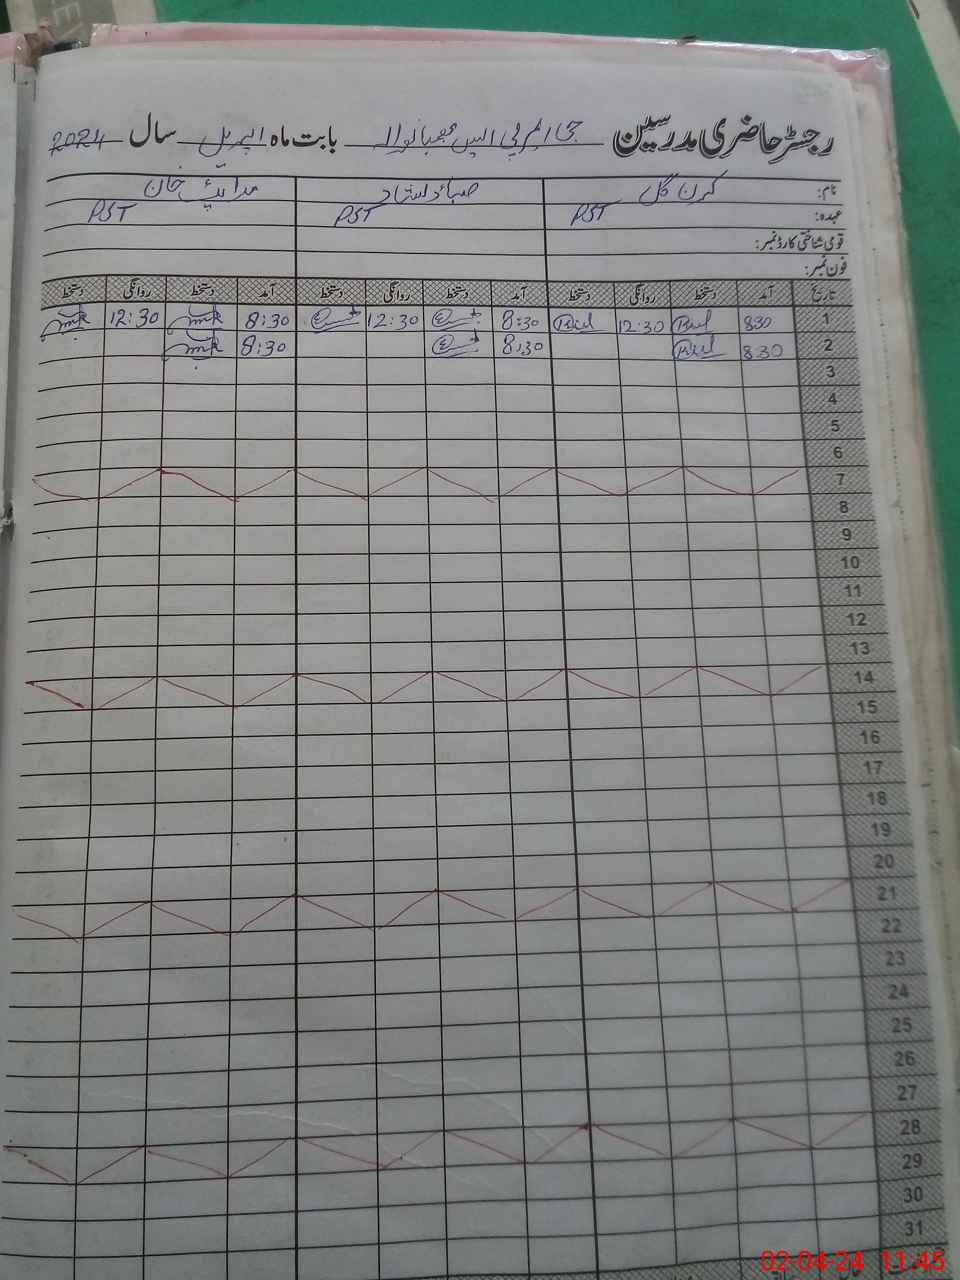 رجسٹر حاضری مدرسین جی ایم پی ایس بابت ماہ اپریل سال 2024
نام: کرن گل صبا دلشاد خان
عہدہ: PST PST PST
قومی شناختی کارڈ نمبر:
فون نمبر:
تاریخ آمد دستخط روانگی دستخط آمد دستخط روانگی دستخط آمد دستخط روانگی دستخط
1 830 12:30 8:30 12:30 8:30 12:30
2 830 8:30 8:30
3
4
5
6
7
8
9
10
11
12
13
14
15
16
17
18
19
20
21
22
23
24
25
26
27
28
29
30
31
02-04-24 11:45